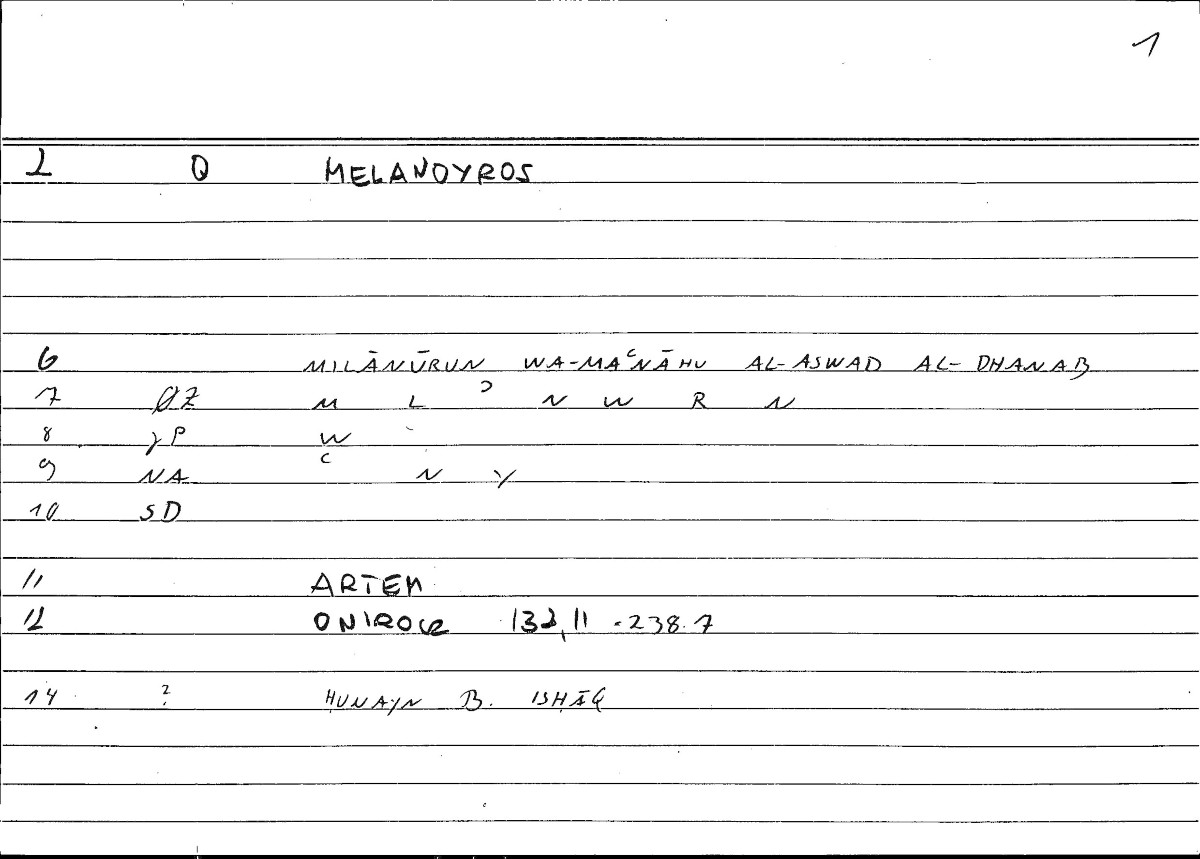 1
2 Q MELANOYROS
6 MILĀNŪRUN WA-MAʿNĀHU AL-ASWAD AL-DHANAB
7 ØZ M L ʾ N W R N
8 γP W
9 NA ʿ N Y
10 SD
11 ARTEM
12 ONIROCR 132,11 -238.7
14 ? ḤUNAYN B. ISḤĀQ